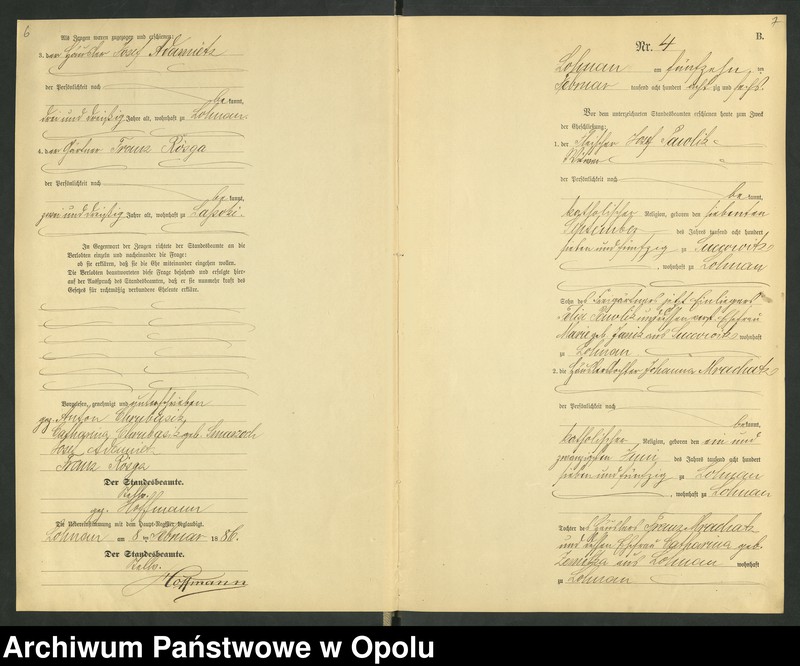 6
Als Zeugen waren zugezogen und erschienen:
3. der Häusler Josef Adamietz
der Persönlichkeit nach
be kannt,
drei und dreißig Jahre alt, wohnhaft zu Lohnau.
4. der Gärtner Franz Kósga
der Persönlichkeit nach
be kannt,
zwei und dreißig Jahre alt, wohnhaft zu
In Gegenwart der Zeugen richtete der Standesbeamte an die
Verlobten einzeln und nacheinander die Frage:
ob sie erklären, daß sie die Ehe miteinander eingehen wollen.
Die Verlobten beantworteten diese Frage bejahend und erfolgte hier-
auf der Ausspruch des Standesbeamten, daß er sie nunmehr kraft des
Gesetzes für rechtmäßig verbundene Eheleute erkläre.
Vorgelesen, genehmigt und unterschrieben
gez. Anton Chrubasik
Catharina Chrubasik geb.
Josef Adamietz
Franz Kosga
Der Standesbeamte.
gez. Hoffmann
Die Uebereinstimmung mit dem Haupt-Register beglaubigt.
Lohnau am 8 ten Februar 1886.
Der Standesbeamte.
Hoffmann
7
B.
Nr. 4
Lohnau am fünfzehn ten
Februar tausend acht hundert acht zig und sechs.
Vor dem unterzeichneten Standesbeamten erschienen heute zum Zweck
der Eheschließung:
1. der Fleischer Josef Pawlik
der Persönlichkeit nach
be kannt,
katholischer Religion, geboren den siebenten
September des Jahres tausend acht hundert
sieben und fünfzig zu
, wohnhaft zu Lohnau
Sohn des Freigärtners jetzt Einliegers
Pawlik und dessen Ehefrau
Marie geb. aus wohnhaft
zu Lohnau
2. die Häuslertochter Johanna Mrachatz
der Persönlichkeit nach
be kannt,
katholischer Religion, geboren den ein und
zwanzigsten Juni des Jahres tausend acht hundert
sieben und fünfzig zu Lohnau
, wohnhaft zu Lohnau
Tochter des Häuslers Franz Mrachatz
und dessen Ehefrau Catharina geb.
aus Lohnau wohnhaft
zu Lohnau
Archiwum Państwowe w Opolu